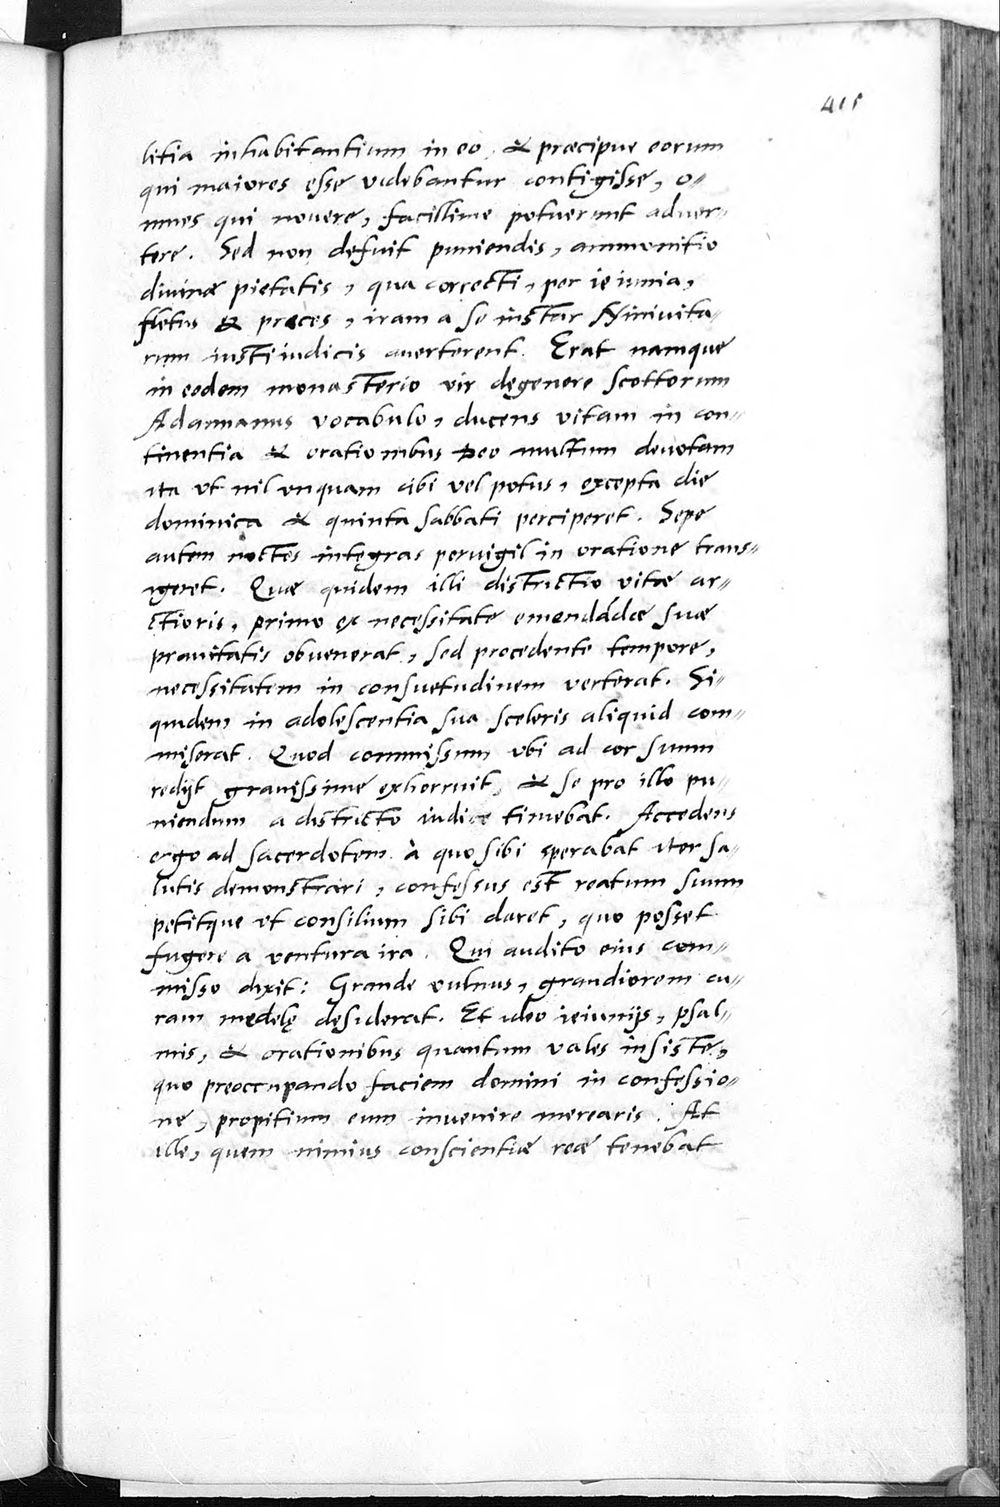 411
litia inhabitantium in eo, & præcipue eorum
qui maiores esse videbantur contigisse, o-
mnes qui novere, facillime potuerunt adver-
tere. Sed non defuit puniendis, ammonitio
divinæ pietatis, qua correcti, per ieiunia,
fletus & preces, iram a se instar Ninivita-
rum iusti iudicis averterent. Erat namque
in eodem monasterio vir de genere Scottorum
Adamnanus vocabulo, ducens vitam in con-
tinentia & orationibus Deo multum devotam
ita vt nil vnquam cibi vel potus, excepta die
dominica & quinta sabbati perciperet. Sepe
autem noctes integras pervigil in oratione trans-
igeret. Quæ quidem illi districtio vitæ ar-
ctioris, primo ex necessitate emendãdæ suæ
pravitatis obvenerat, sed procedente tempore,
necessitatem in consuetudinem verterat. Si-
quidem in adolescentia sua sceleris aliquid com-
miserat. Quod commissum vbi ad cor suum
redijt gravissime exhorruit, & se pro illo pu-
niendum a districto iudice timebat. Accedens
ergo ad sacerdotem à quo sibi sperabat iter sa-
lutis demonstrari, confessus est reatum suum
petitque vt consilium sibi daret, quo posset
fugere a ventura ira. Qui audito eius com-
misso dixit: Grande vulnus, grandiorem cu-
ram medelę desiderat. Et ideo ieiunijs, psal-
mis, & orationibus quantum vales insiste,
quo preoccupando faciem domini in confessio-
ne, propitium eum invenire merearis. At
ille, quem nimius conscientiæ reæ tenebat